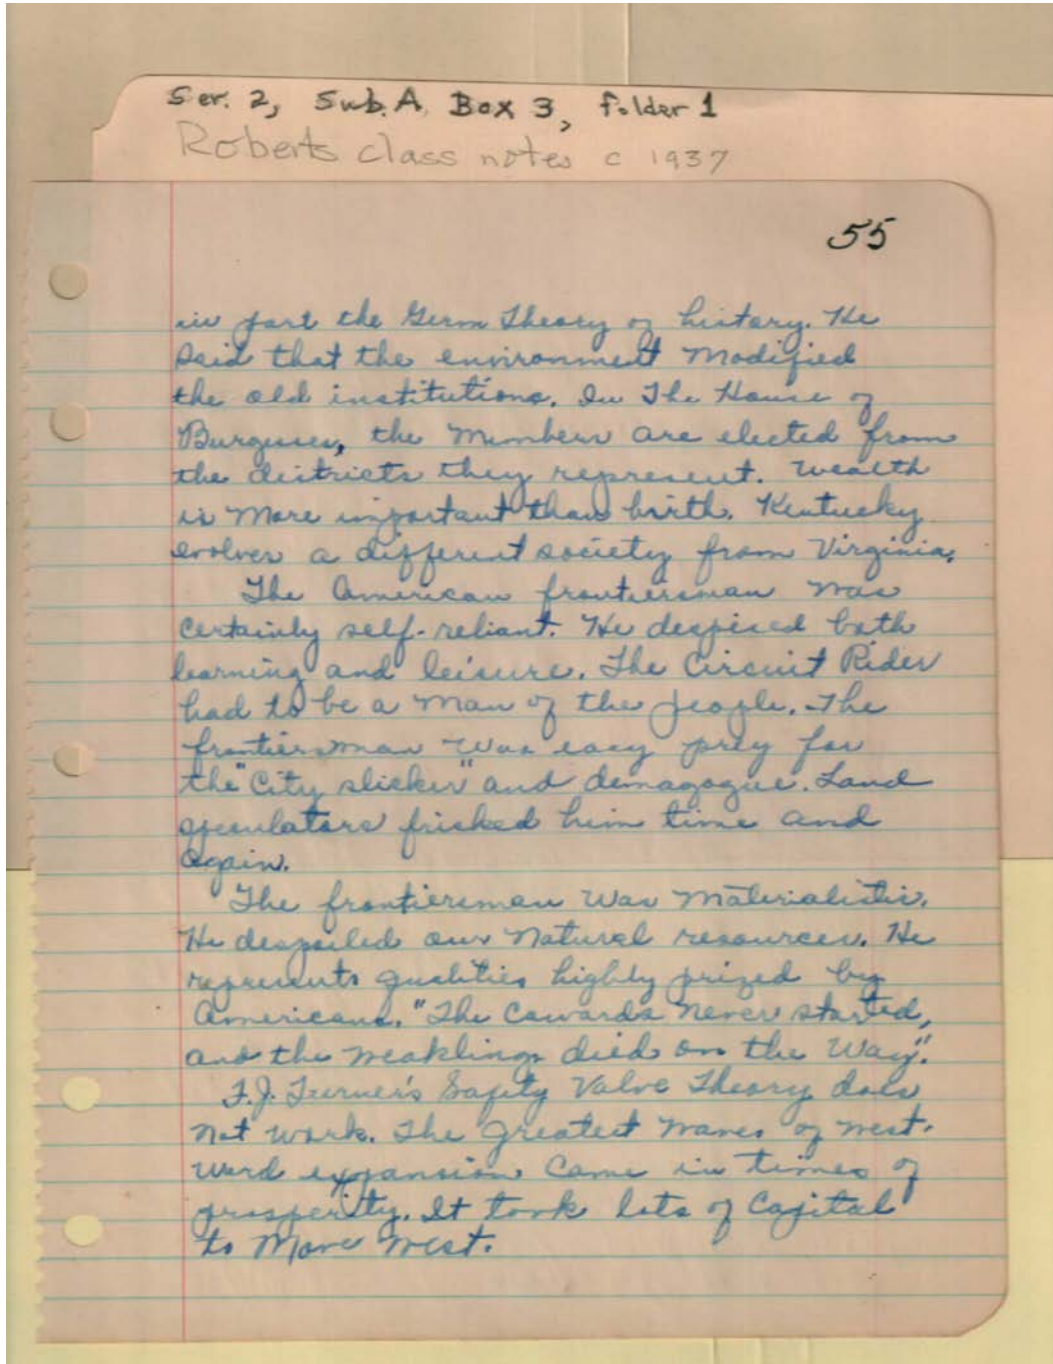 Ser. 2, Sub. A, Box 3, folder 1
Roberts class notes c 1937
55
in part the Germ Theory of history. He
said that the environment modified
the old institutions. In The House of
Burgesses, the members are elected from
the districts they represent. Wealth
is more important than birth. Kentucky
evolves a different society from Virginia.
The American frontiersman was
certainly self-reliant. He despised both
learning and leisure. The Circuit Rider
had to be a man of the people. The
frontiersman was easy prey for
the "City slicker" and demagogue. Land
speculators frisked him time and
again.
The frontiersman was materialistic.
He despoiled our natural resources. He
represents qualities highly prized by
Americans. "The Cowards never started,
and the weaklings died on the way".
F.J. Turner's Safety Valve Theory does
not work. The greatest waves of west-
ward expansion came in times of
prosperity. It took lots of Capital
to move west.